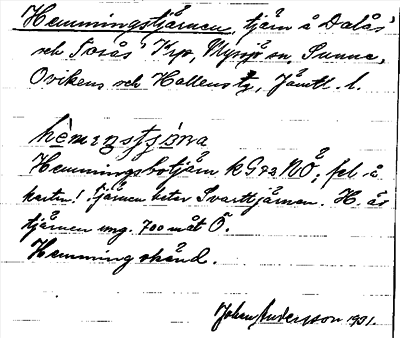 Hemmingstjärnen, tjärn å Dalås
och Torås krp, Myssjö sn, Sunne,
Ovikens och Hallens tg, Jämtl. l.
Hemmingsbotjärn kG 92 NÖ; fel å
kartan! Tjärnen heter Svarttjärnen. H. är
tjärnen ung. 700 m åt Ö.
Hemming okänd.
John Andersson 1931.